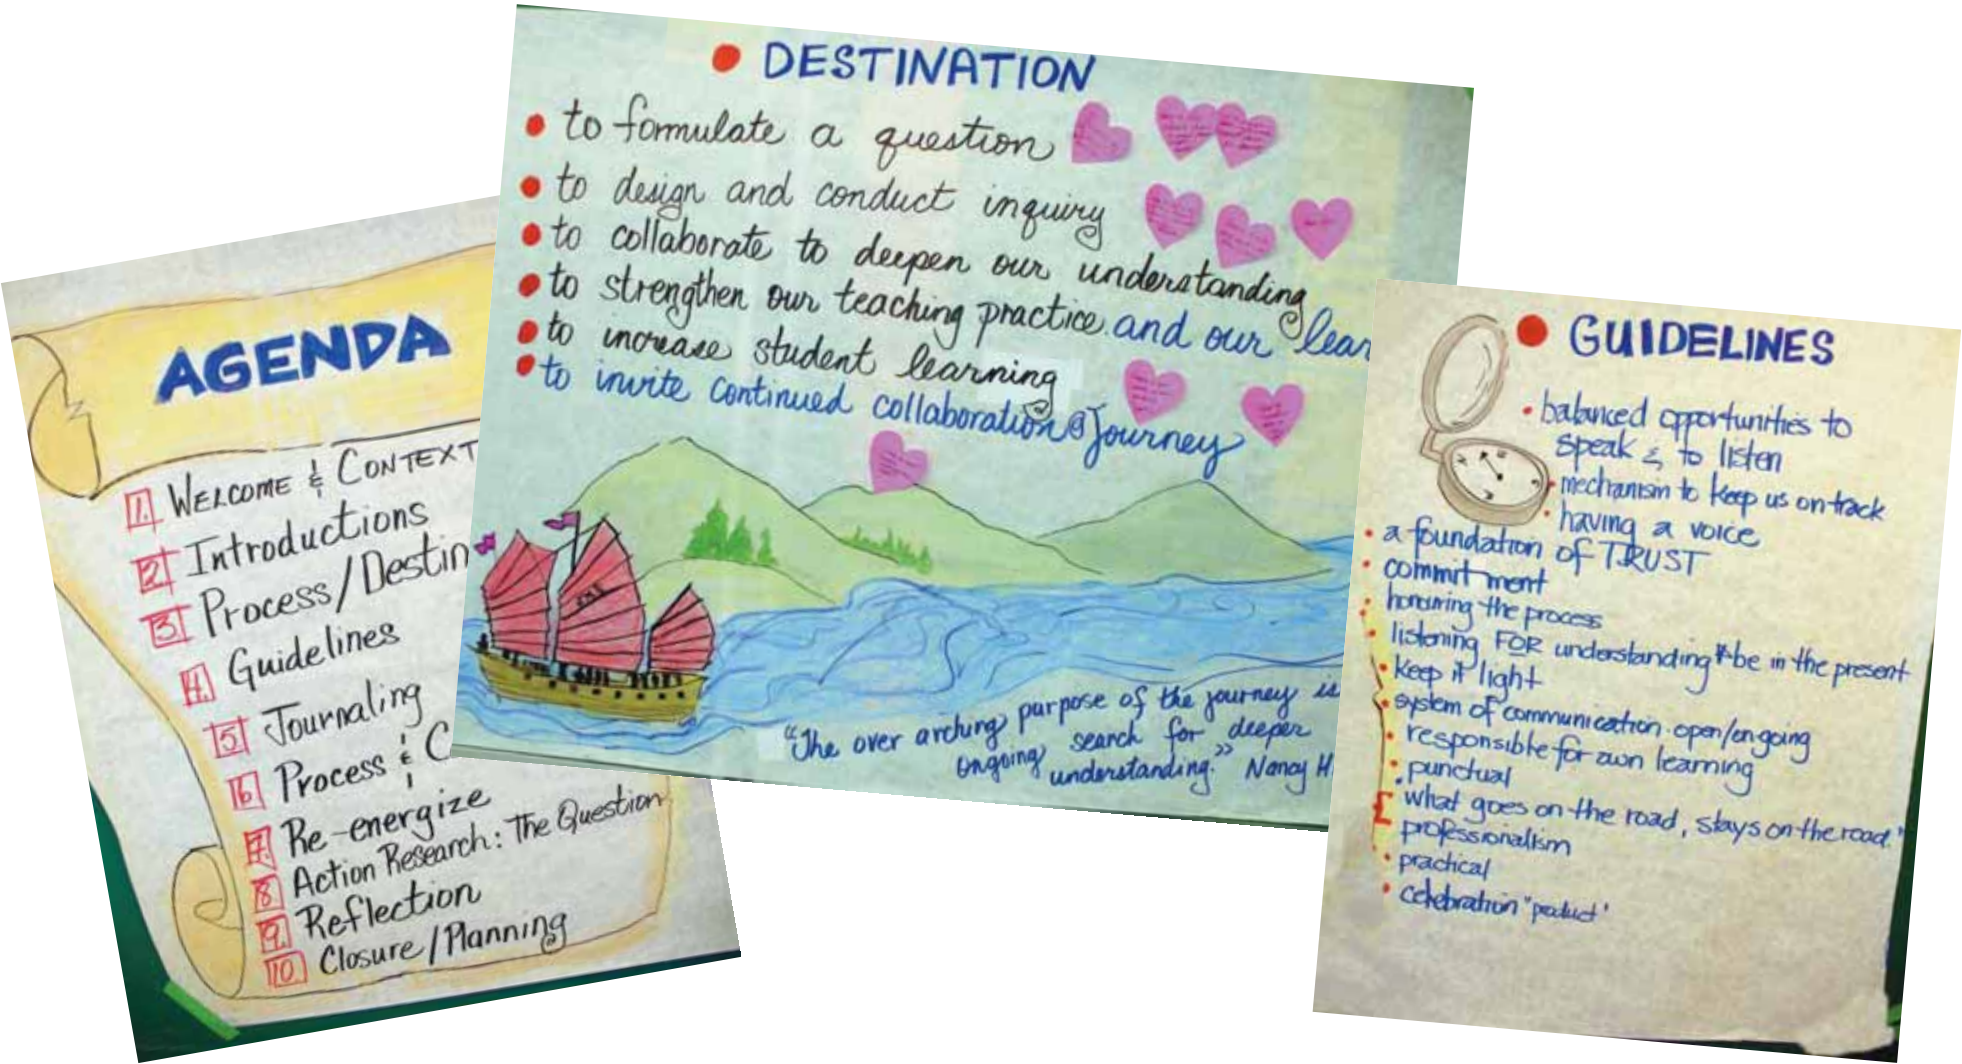 AGENDA
1. WELCOME & CONTEXT
2. Introductions
3. Process/Destin
4. Guidelines
5. Journaling
6. Process & C
7. Re-energize
8. Action Research: The Question
9. Reflection
10. Closure/Planning
• DESTINATION
• to formulate a question
• to design and conduct inquiry
• to collaborate to deepen our understanding
• to strengthen our teaching practice and our lear
• to increase student learning
• to invite continued collaboration @ Journey
"The over arching purpose of the journey is
ongoing search for deeper
understanding." Nancy H.
• GUIDELINES
• balanced opportunities to
speak & to listen
• mechanism to keep us on track
• having a voice
• a foundation of TRUST
• commitment
• honouring the process
• listening FOR understanding * be in the present
• keep it light
• system of communication open/ongoing
• responsible for own learning
• punctual
what goes on the road, stays on the road."
professionalism
• practical
• celebration "product"